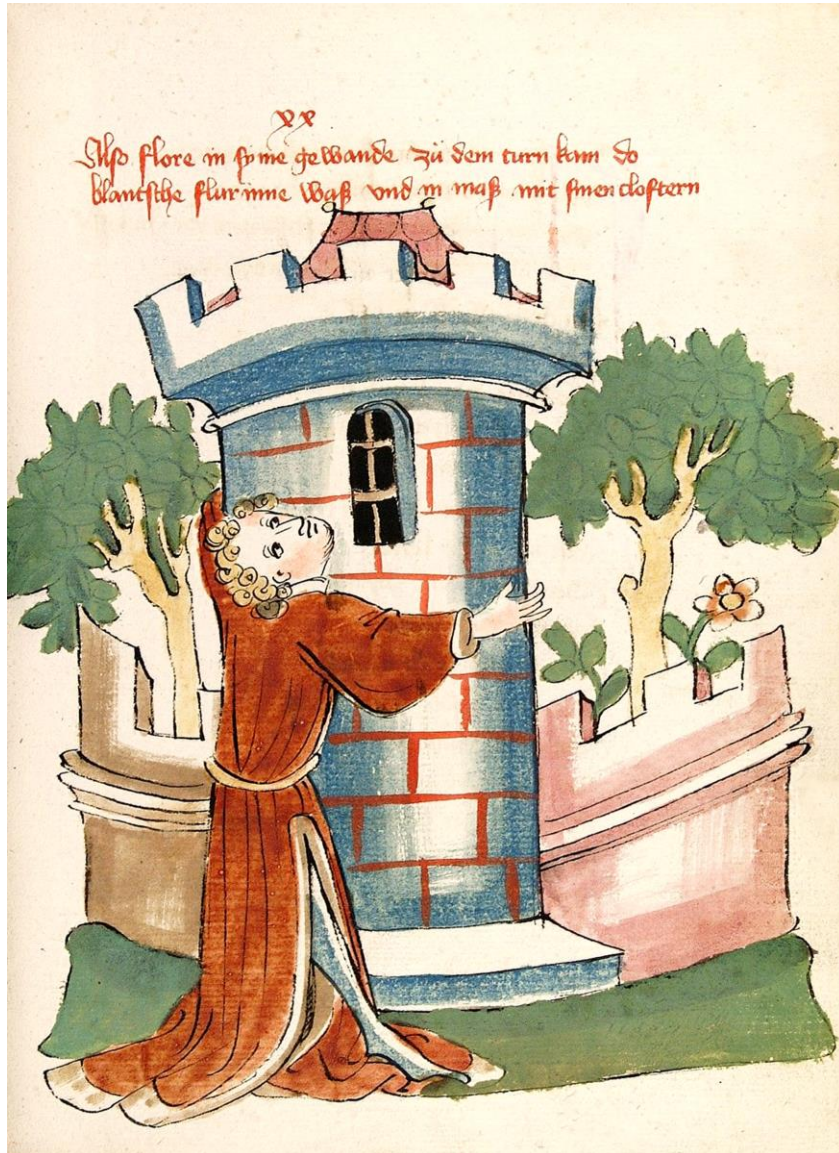 xx
Also flore in syme gewande zü dem turn kam do
blantsche flur inne waß vnd in maß mit sinen cloftern